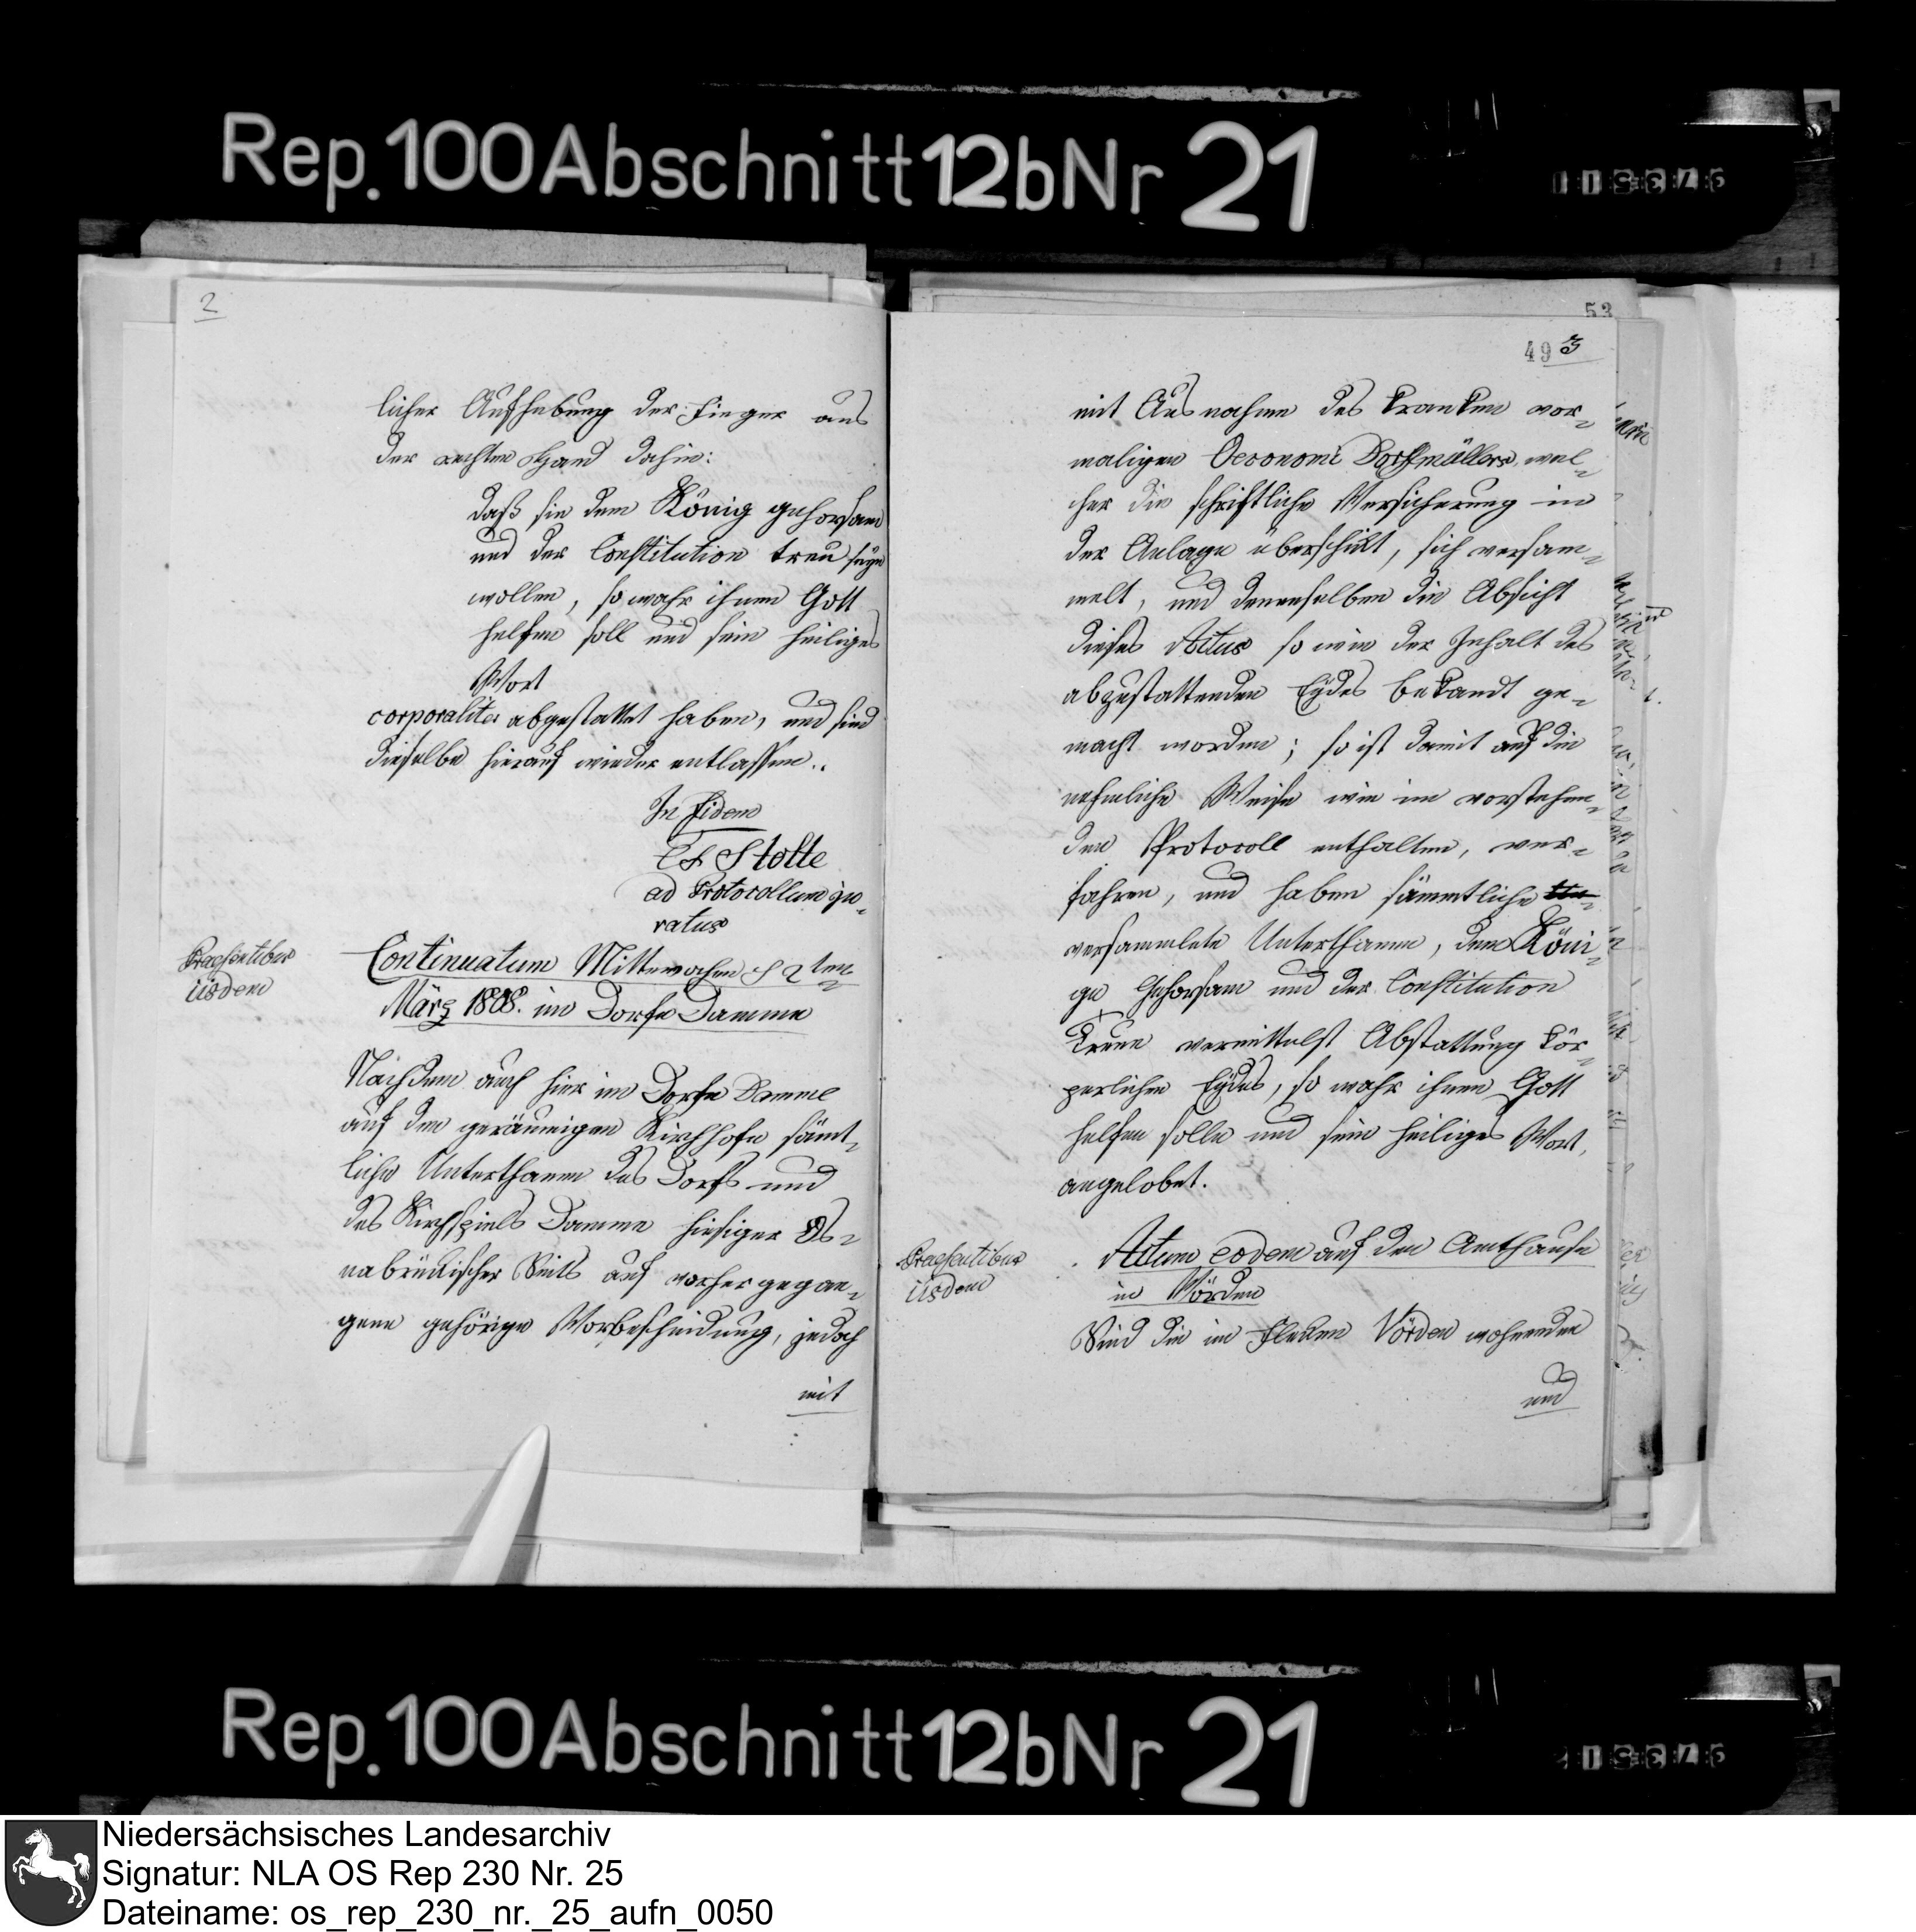 Rep. 100 Abschnitt 12b Nr 21
2
licher Aufhebung der Finger aus
der rechten Hand dahin:
daß sie dem König gehorsam
und der Constitution treu seyn
wollen, so wahr ihnen Gott
helfen soll und sein heiliges
Wort
corporaliter abgestattet haben, und sind
dieselbe hierauf wieder entlassen.
In fidem
Stolte
ad Protocollum ju-
ratus
Praesentibus
iisdem
Continuatum Mittewochen d 2ten
März 1808. im Dorfe Damme
Nachdem auch hier im Dorfe Damme
auf dem geräumigen Kirchhofe sämt-
liche Unterthanen des Dorfs und
des Kirchspiels Damme hiesiger Os-
nabrückischer Seits auf vorhergegan-
gene gehörige Vorbescheidung, jedoch
mit
53
49 3
mit Ausnahme des kranken vor-
maligen Oeconomi Dorfmüllers, wel-
cher die schriftliche Versicherung in
der Anlage überschikt, sich versam-
melt, und denenselben die Absicht
dieses Actus so wie der Inhalt des
abzustattenden Eydes bekandt ge-
macht worden; so ist damit auf die
nehmliche Weise wie im vorstehen-
den Protocoll enthalten, ver-
fahren, und haben sämmtliche
versammlete Unterthanen, dem Köni-
ge Gehorsam und der Constitution
Treue vermittelst Abstattung kör-
perlichen Eydes, so wahr ihnen Gott
helfen solle und sein heiliges Wort,
angelobet.
Praesentibus
iisdem
Actum eodem auf dem Amthause
in Vörden
Sind die im Flecken Vörden wohnenden
und
Rep. 100 Abschnitt 12b Nr 21
Niedersächsisches Landesarchiv
Signatur: NLA OS Rep 230 Nr. 25
Dateiname: os_rep_230_nr._25_aufn_0050